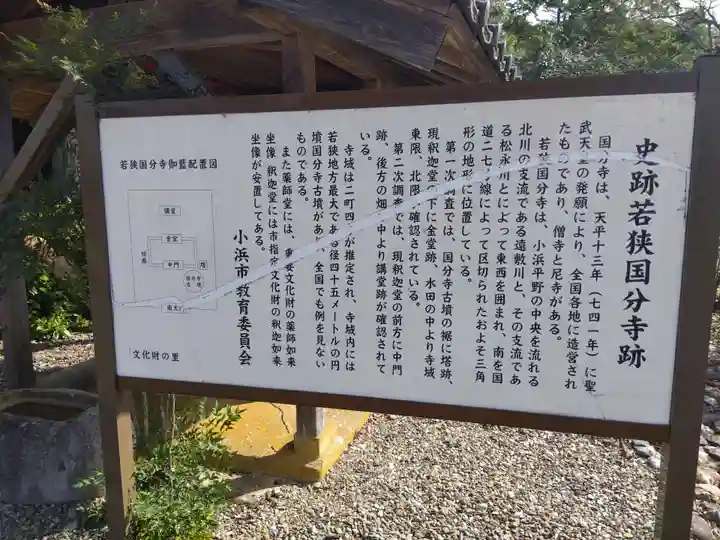 史跡若狭国分寺跡
国分寺は、天平十三年(七四一年)に聖
武天皇の発願により、全国各地に造営され
たものであり、僧寺と尼寺がある。
若狭国分寺は、小浜平野の中央を流れる
北川の支流である遠敷川と、その支流であ
る松永川とによって東西を囲まれ、南を国
道二七号線によって区切られたおよそ三角
形の地形に位置している。
第一次調査では、国分寺古墳の裾に塔跡、
現釈迦堂の下に金堂跡、水田の中より寺域
東限、北限が確認されている。
第二次調査では、現釈迦堂の前方に中門
跡、後方の畑の中より講堂跡が確認されて
いる。
寺域は二町四方が推定され、寺域内には
若狭地方最大である径四十五メートルの円
墳国分寺古墳があり、全国でも例を見ない
ものである。
また薬師堂には、重要文化財の薬師如来
坐像 釈迦堂には市指定文化財の釈迦如来
坐像が安置してある。
小浜市教育委員会
若狭国分寺伽藍配置図
講堂
金堂
中門
塔
国分寺
古墳
南大門
「文化財の里